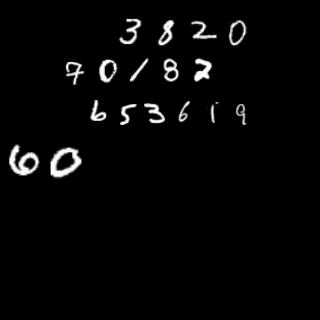 3820
70/82
653619
60